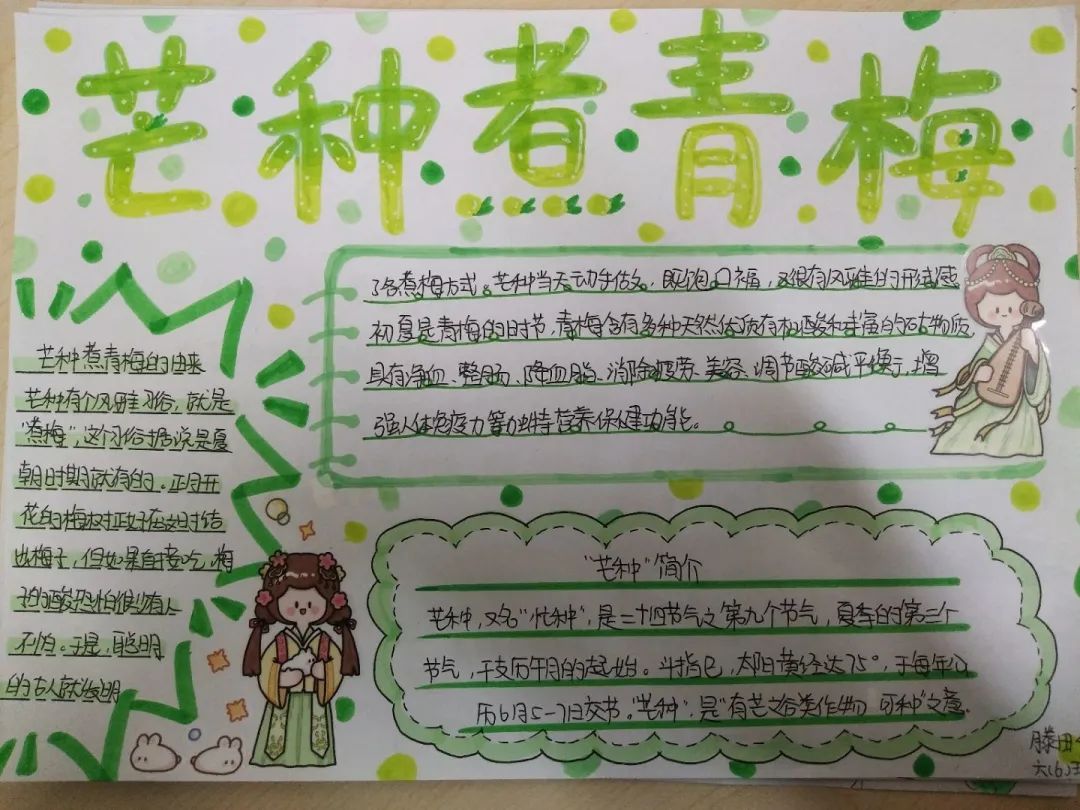 芒种煮青梅
芒种煮青梅的由来
芒种有个风雅习俗，就是
“煮梅”，这个习俗据说是夏
朝时期就有的。正月开
花的梅树正好在这时结
出梅子，但如果直接吃，梅
子的酸恐怕很少有人
不怕。于是，聪明
的古人就发明
了各煮梅方式。芒种当天动手做，既饱口福，又很有风雅的形式感
初夏是青梅的时节，青梅含有多种天然优质有机酸和丰富的矿物质
具有净血、整肠、降血脂、消除疲劳、美容、调节酸碱平衡，增
强人体免疫力等独特营养保健功能。
“芒种”简介
芒种，又名“忙种”，是二十四节气之第九个节气，夏季的第三个
节气，干支历午月的起始。斗指巳，太阳黄经达75°，于每年公
历6月5-7日交节。“芒种”，是“有芒之谷类作物可种”之意。
滕田
六(6)班